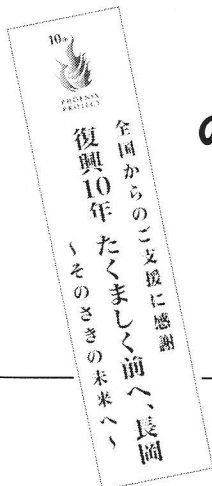 10th
PHOENIX
PROJECT
全国からのご支援に感謝
復興10年 たくましく前へ、長岡
～そのさきの未来へ～
の